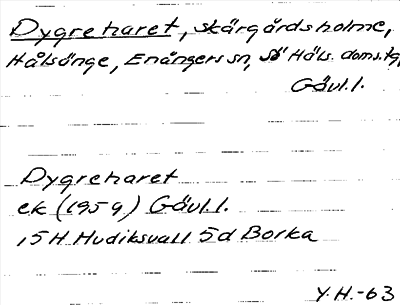 Dygreharet, skärgårdsholme,
Hålsänge, Enångers sn, sö Häls. doms. tg,
Gävl. l.
Dygreharet
ek (1959) Gävl. l.
15H Hudiksvall 5d Borka
Y.H.-63